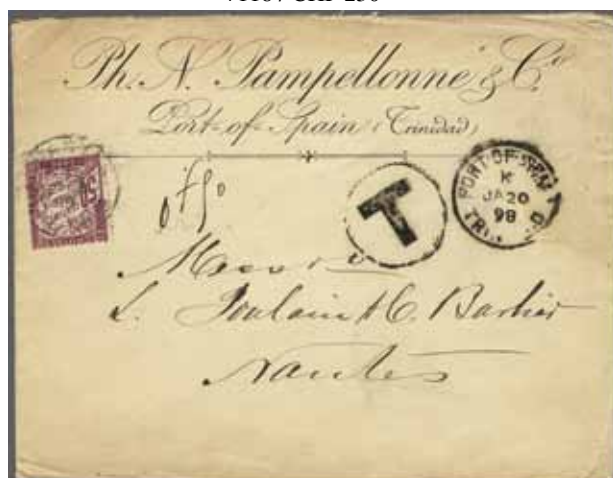 Ph. N. Pampellonne & Co
Port-of-Spain (Trinidad)
50
0f50
T
PORT-OF-SPAIN
K
JA 20
98
TRI D
L. Poulain & C. Barbier
Nantes